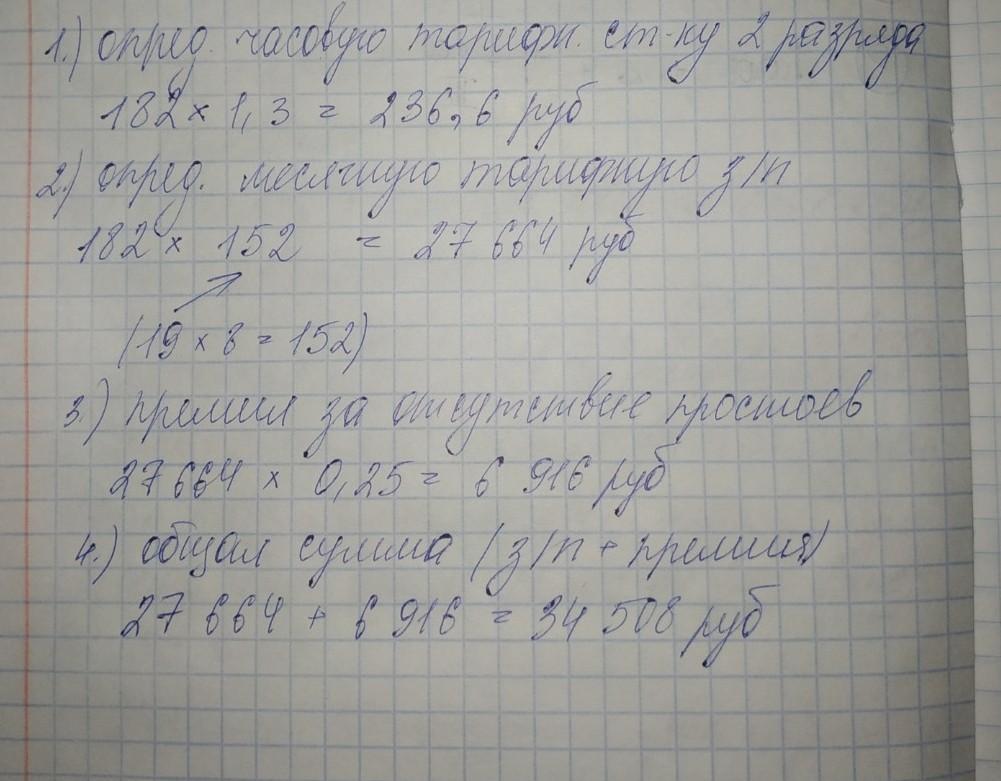 1.) опред. часовую тарифн. ст-ку 2 разряда
182 × 1,3 = 236,6 руб
2.) опред. месячную тарифную з/п
182 × 152 = 27 664 руб
(19 × 8 = 152)
3.) премия за отсутствие простоев
27 664 × 0,25 = 6 916 руб
4.) общая сумма (з/п + премия)
27 664 + 6 916 = 34 508 руб